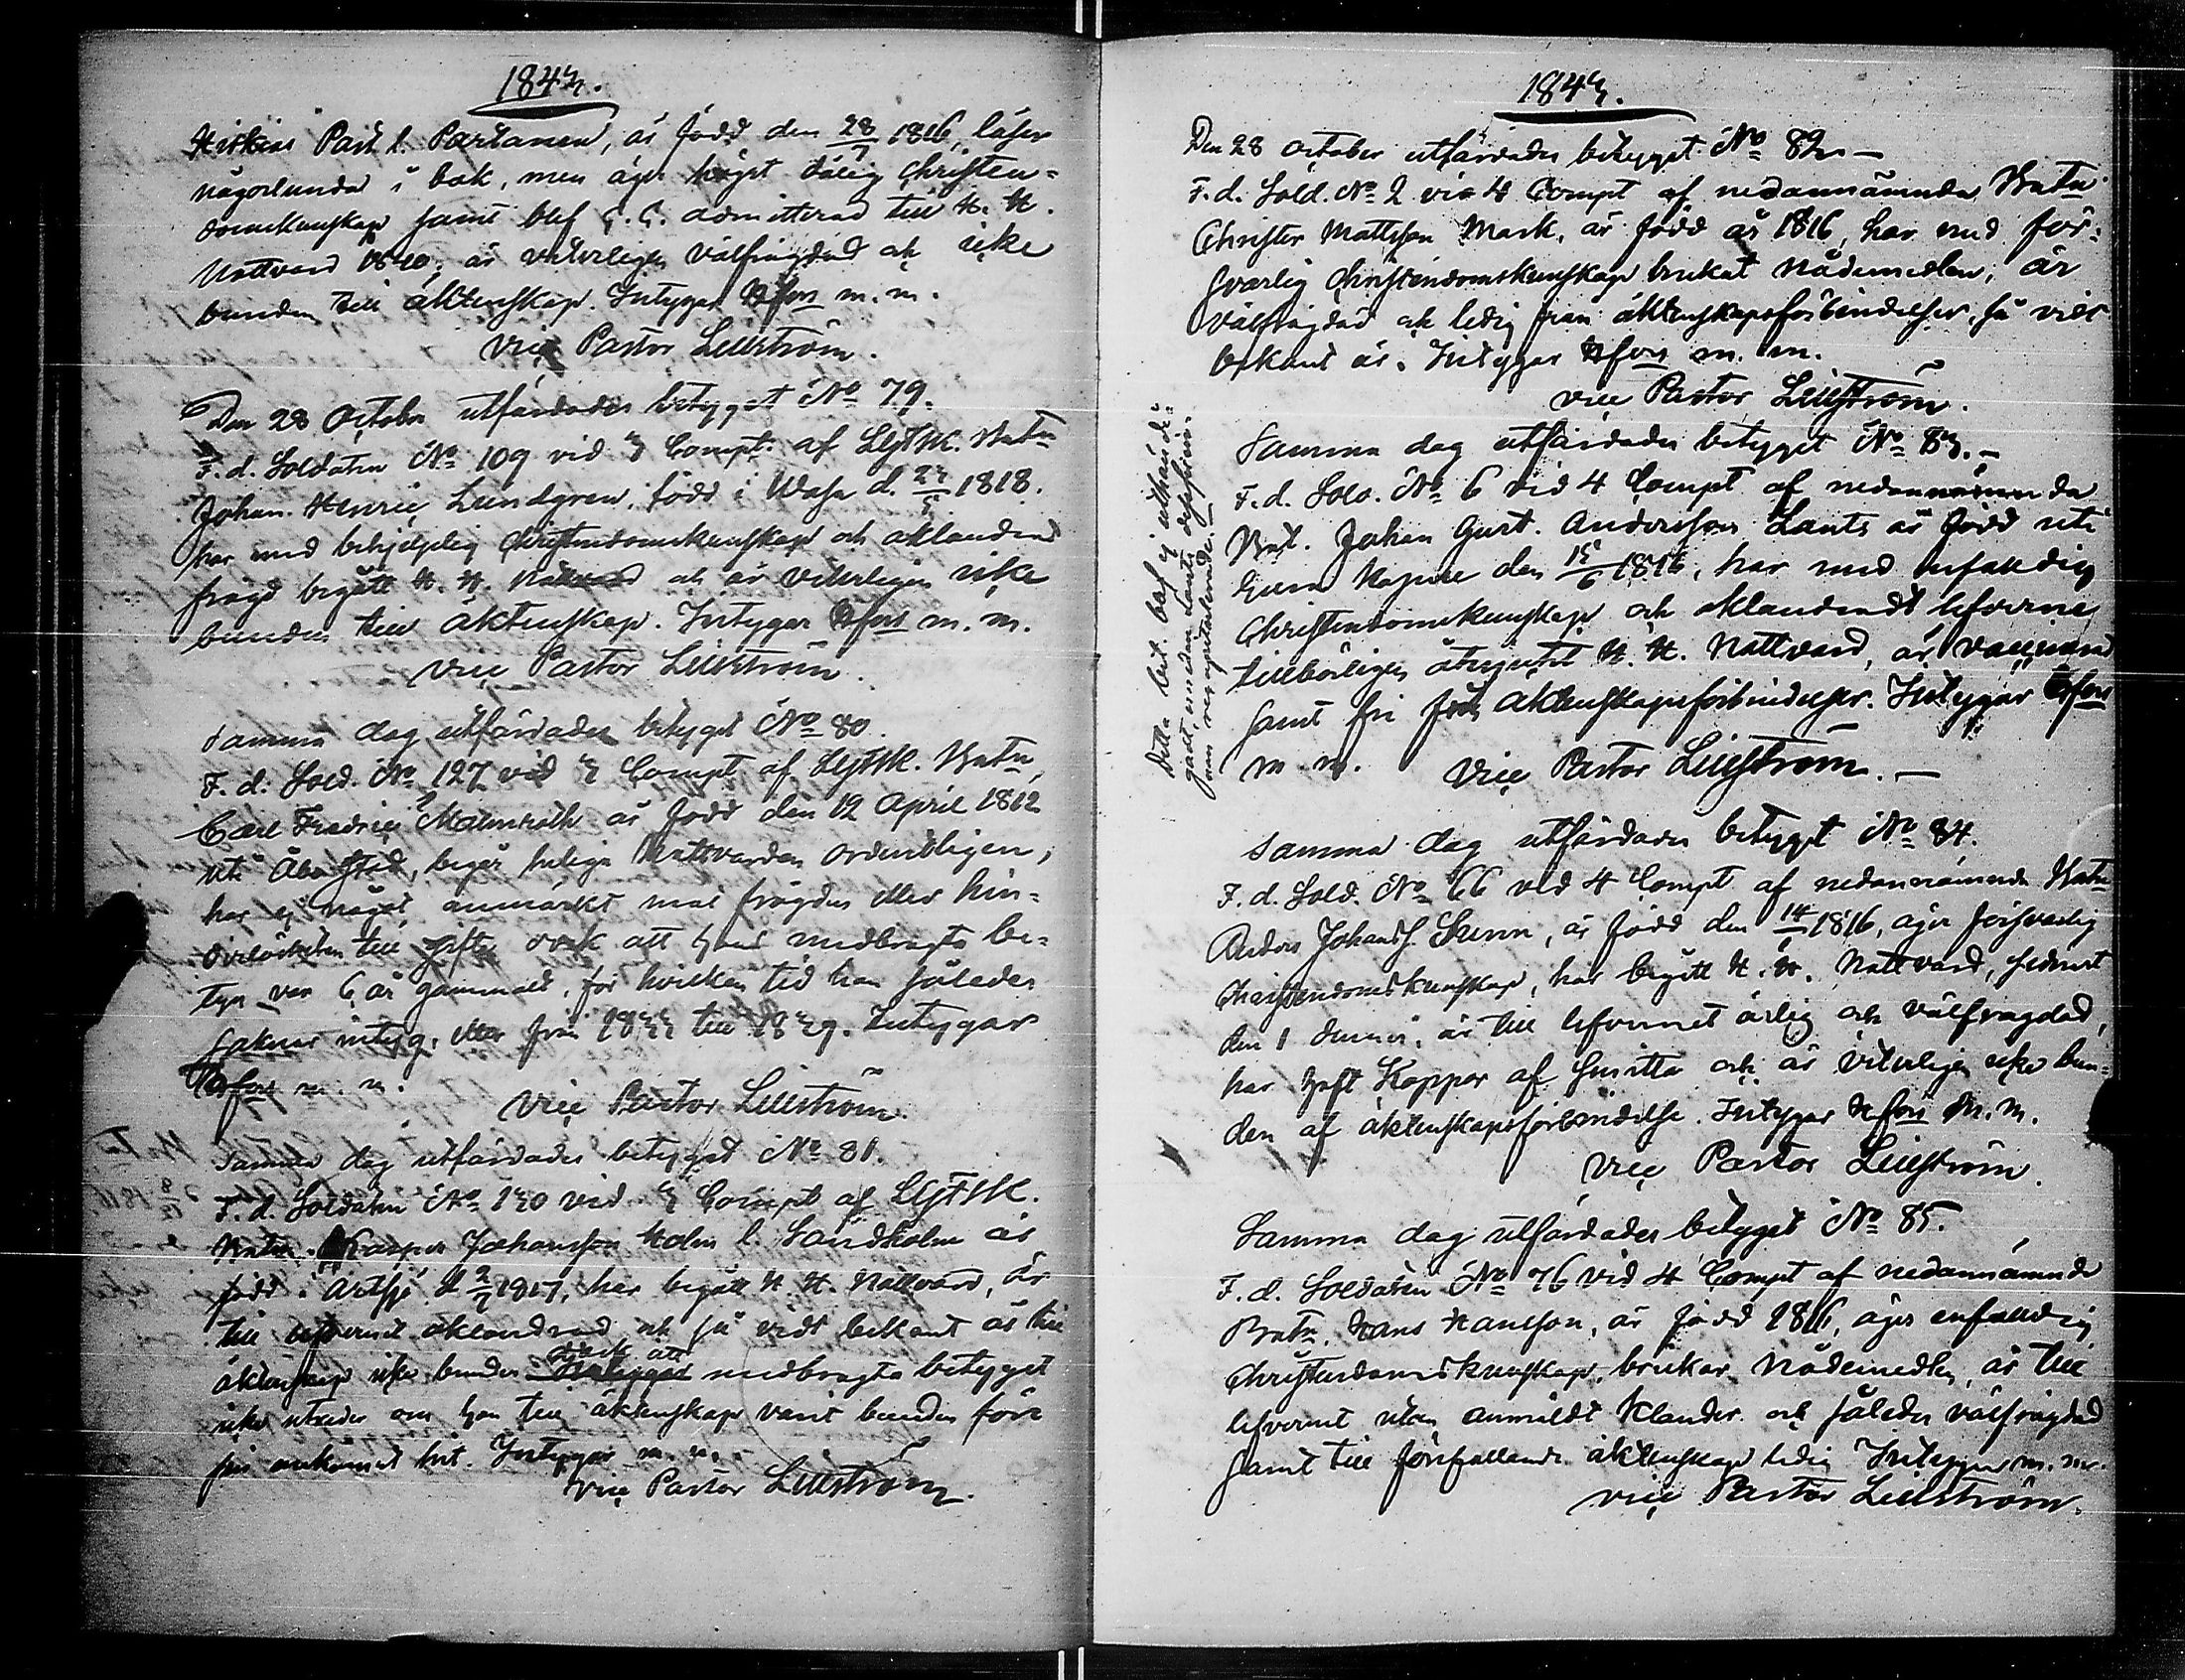 1843.
Hiskias Part l. Partanen, är född den 28/7 1816, läser
någorlunda i bok, men äger högst dålig Christen-
domskunskap samt blef admitterad till H. H.
Nattvard 1840; är veterligen välfrägdad och icke
bunden till äktenskap. Intygar Hfors m. m.
vice Pastor Lillström.
Den 28 October utfärdades betyget No 79.
F. d. Soldaten No 109 vid 3 Compt. af LGFSK. Batn
Johan Henric Lundgren, född i Wasa d. 1818.
har med behjelplig Christendomskunskap och oklandrad
frägd begått H. H. Nattvard och är veterligen icke
bunden till äktenskap. Intygar Hfors m. m.
vice Pastor Lillström.
Samma dag utfärdades betyget No 80.
F. d. Sold. No 127 vid 3 Compt af LGFSK. Batn,
Carl Fredric Malmroth är född den 12 April 1812
uti Åbo Stad, begår helige Nattvarden ordentligen,
har ej något anmärkt mot frägden eller hin-
derlösheten till gifte, dock att hans medbragte be-
tyg var 6 år gammalt, för hvilken tid han således
saknar intyg, eller från 1833 till 1839. Intygar
Hfors m. m.
vice Pastor Lillström.
Samma dag utfärdades betyget No 81.
F. d. Soldaten No 130 vid 3 Compt af LGFSK.
Batn. Casper Johansson Holm l. Sandholm är
född i Artsjö d. 2/7 1817, har begått H. H. Nattvard, är
till lefvernet oklandrad och så vidt bekant är till
äktenskap icke bunden dock att medbragte betyget
icke utreder om han till äktenskap varit bunden före
sin ankomst hit. Intygar m. m.
vice Pastor Lillström.
1843.
Den 28 October utfärdades betyget No 82.—
F. d. Sold. No 2 vid 4 Compt af nedannämnda Batn
Christer Mattsson Mark, är född år 1816, har med för-
svarlig Christendomskunskap brukat Nådemedlen, är
välfrägdad och ledig från äktenskapsförbindelser, så vidt
bekant är. Intygar Hfors m. m.
vice Pastor Lillström.
Samma dag utfärdades betyget No 83.—
F. d. Sold. No 6 vid 4 Compt af nedannämnda
Bat. Johan Gust. Andersson Lants är född uti
den 15/6 1816, har med enfaldig
Christendomskunskap och oklandradt lefverne
tillbörligen åtnjutit H. H. Nattvard, är vaccinerad
samt fri från äktenskapsförbindelser. Intygar Hfors
m. m. vice Pastor Lillström.—
Detta bet. blef ej uthändi-
gadt, emedan Lants
om
Samma dag utfärdades betyget No 84.
F. d. Sold. No 66 vid 4 Compt af nedannämnde Batn
Anders Johanss. Sunn, är född den 1816, äger försvarlig
Christendomskunskap, har begått H. H. Nattvard, sednast
den 1 är till lefvernet ärlig och välfrägdad,
har haft Koppor af smitta och är veterligen icke bun-
den af äktenskapsförbindelse. Intygar Hfors m. m.
vice Pastor Lillström.
Samma dag utfärdades betyget No 85.
F. d. Soldaten No 76 vid 4 Compt af nedannämnde
Batn. Hans Hansson, är född 1816, äger enfaldig
Christendomskunskap, brukar Nådemedlen, är till
lefvernet utan anmäldt klander och således välfrägdad
samt till förefallande äktenskap ledig Intygar m. m.
vice Pastor Lillström.